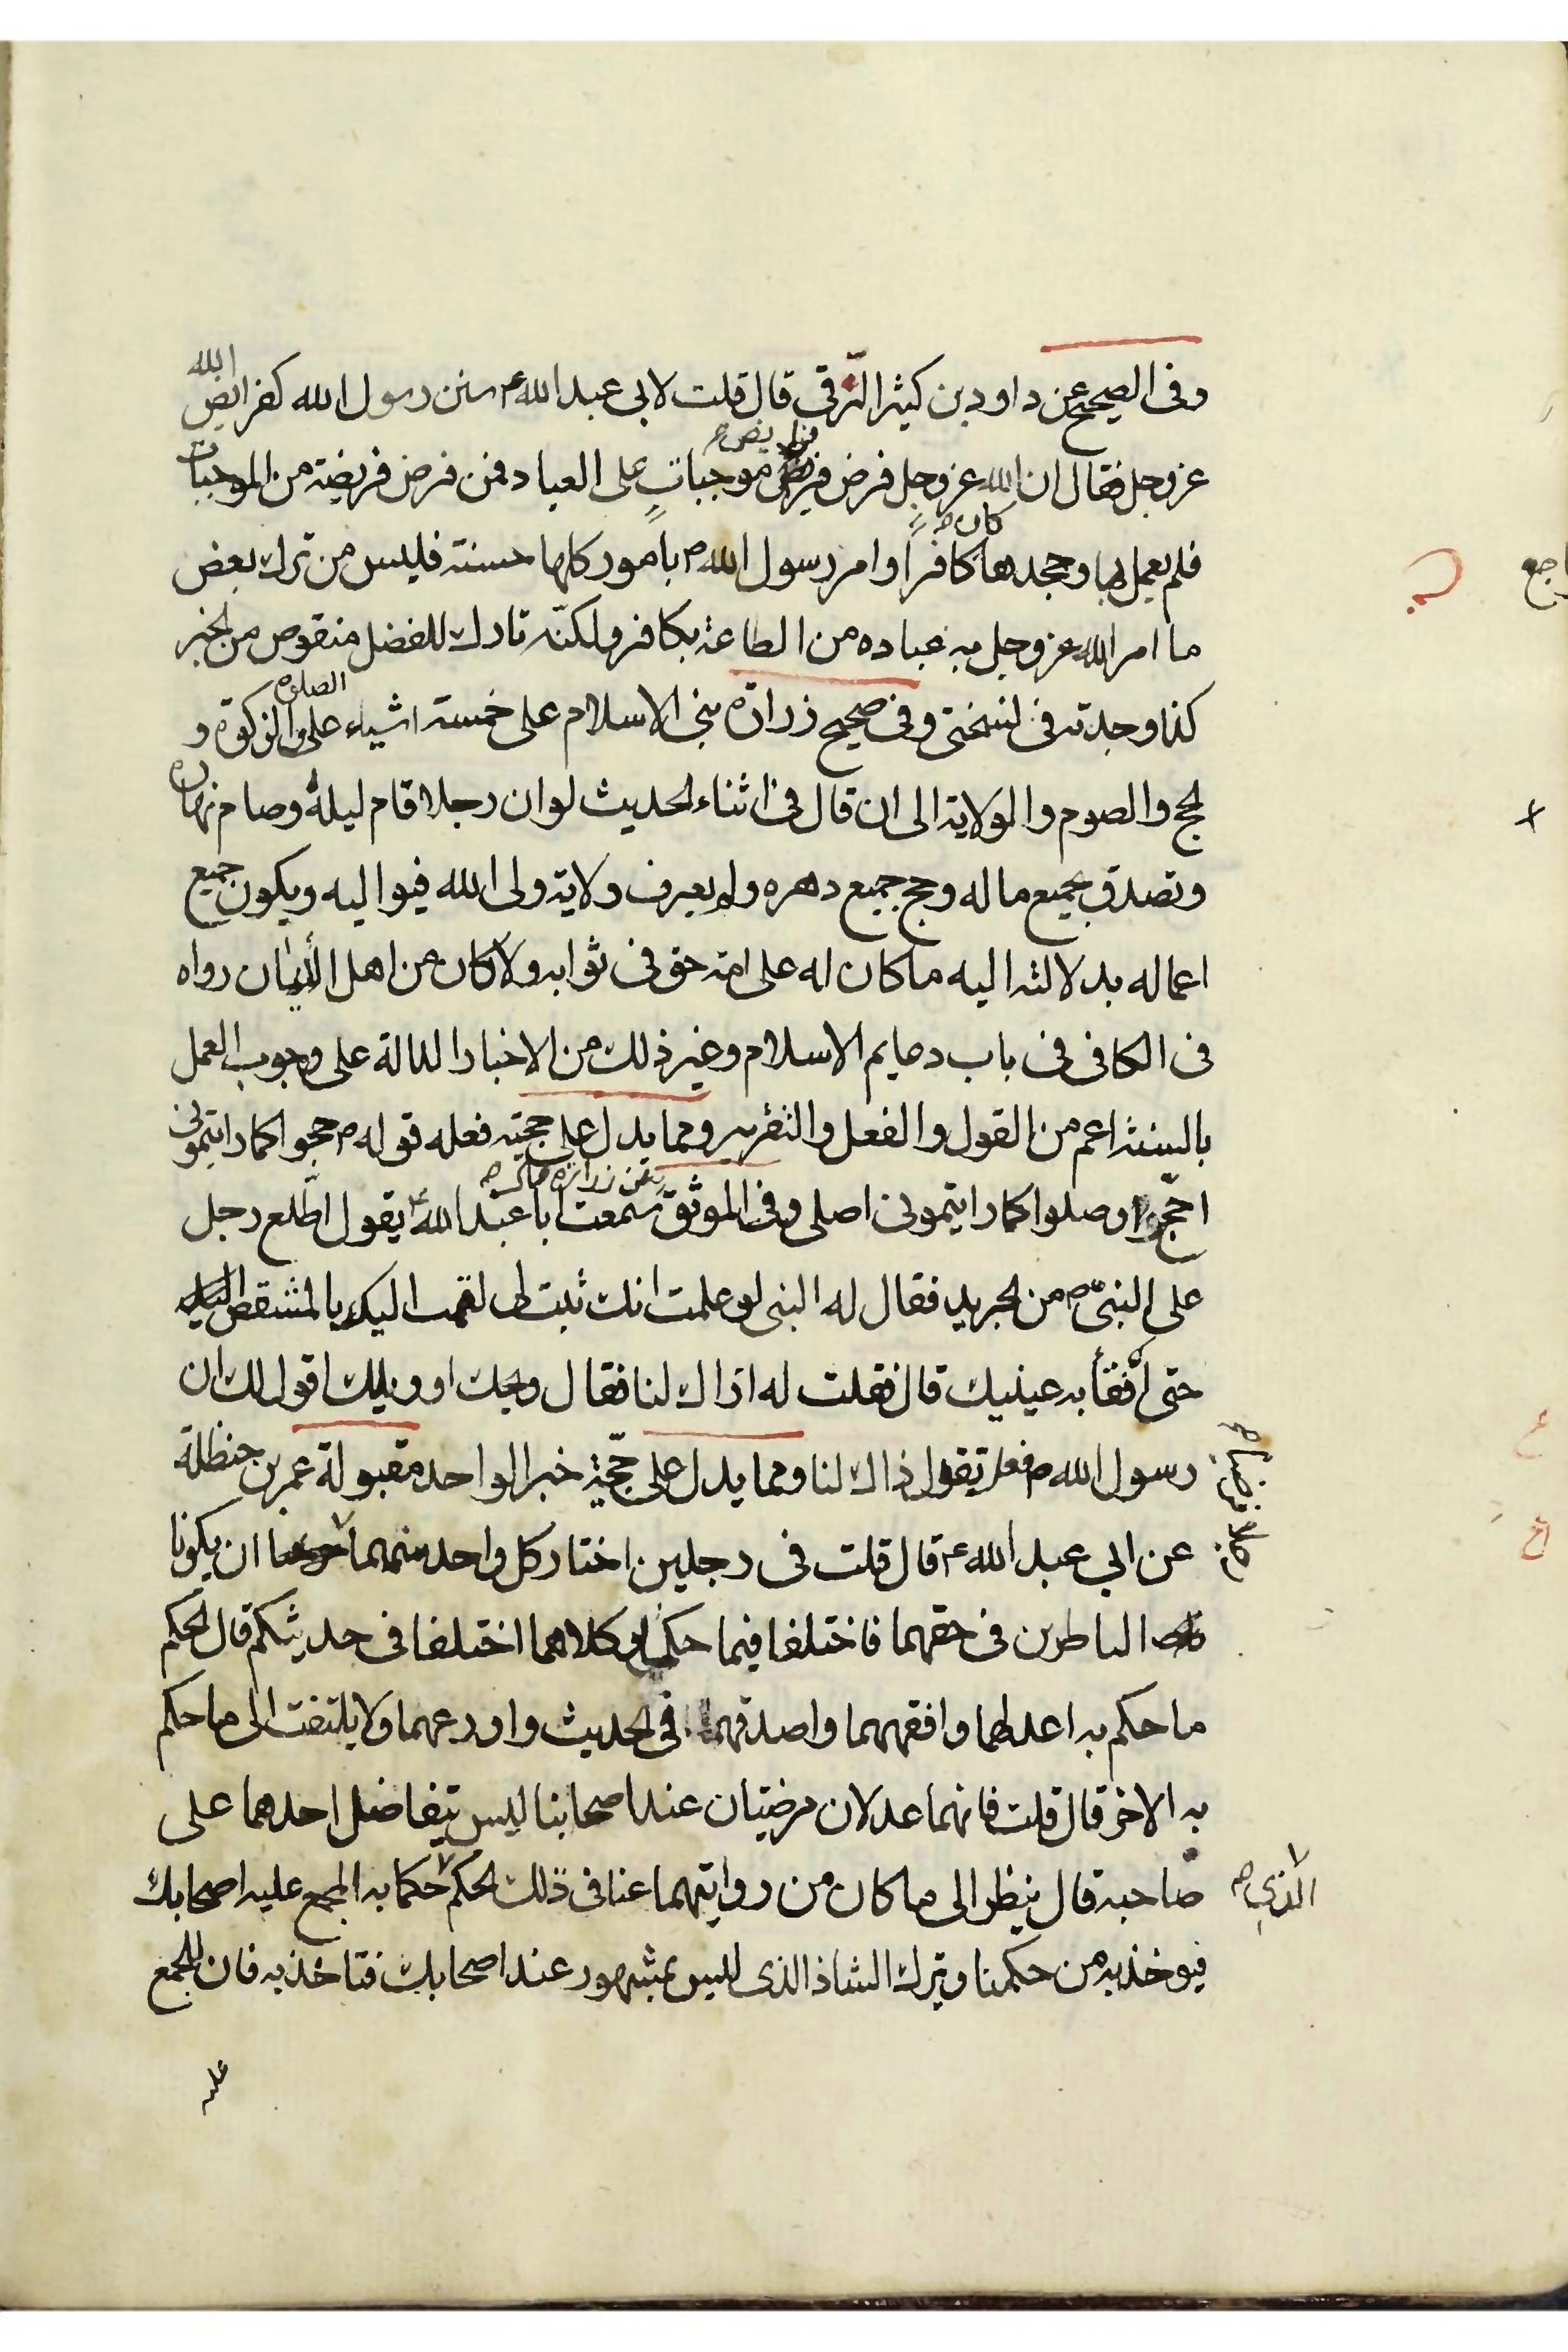 وفى الصحيح عن داود بن كثير الرقى قال قلت لابى عبد الله ع سنن رسول الله كفرايض الله
عز وجل فقال ان الله عز وجل فرض فرايض موجبات على العباد فمن فرض فريضة من الموجبات
فلم يعمل بها وجحدها كان كافرا وامر رسول الله ص بامور كلها حسنة فليس من ترك بعض
ما امر الله عز وجل به عباده من الطاعة بكافر ولكنه تارك للفضل منقوص من الخير
كذا وجدته فى نسختى وفى صحيح زرارة بنى الاسلام على خمسة اشياء على الصلوة والزكوة و
الحج والصوم والولاية الى ان قال فى اثناء الحديث لو ان رجلا قام ليله وصام نهاره
وتصدق بجميع ماله وحج جميع دهره ولم يعرف ولاية ولى الله فيواليه ويكون جميع
اعماله بدلالته اليه ما كان له على الله حق فى ثوابه ولا كان من اهل الايمان رواه
فى الكافى فى باب دعايم الاسلام وغير ذلك من الاخبار الدالة على وجوب العمل
بالسنة اعم من القول والفعل والتقرير ومما يدل على حجية فعله قوله ص حجوا كما رايتمونى
احج وصلوا كما رايتمونى اصلى وفى الموثق عن زرارة قال سمعت ابا عبد الله ع يقول اطلع رجل
على النبى ص من الجريد فقال له النبى لو علمت انك ثبت لى لقمت اليك بالمشقص
حتى افقأ به عينيك قال فقلت له اذاك لنا فقال ويحك او ويلك اقول لك ان
رسول الله ص فعل تقول ذاك لنا ومما يدل على حجية خبر الواحد مقبولة عمر بن حنظلة
عن ابى عبد الله ع قال قلت فى رجلين اختار كل واحد منهما ان يكونا
الناظرين فى حقهما فاختلفا فيما حكما وكلاهما اختلفا فى حديثكم قال الحكم
ما حكم به اعدلهما وافقههما واصدقهما فى الحديث واورعهما ولا يلتفت الى ما حكم
به الاخر قال قلت فانهما عدلان مرضيان عند اصحابنا ليس يتفاضل احدهما على
صاحبه قال ينظر الى ما كان من روايتهما عنا فى ذلك الحكم الذى حكما به المجمع عليه اصحابك
فيوخذ به من حكمنا ويترك الشاذ الذى ليس بمشهور عند اصحابك فتاخذ به فان المجمع
عليه